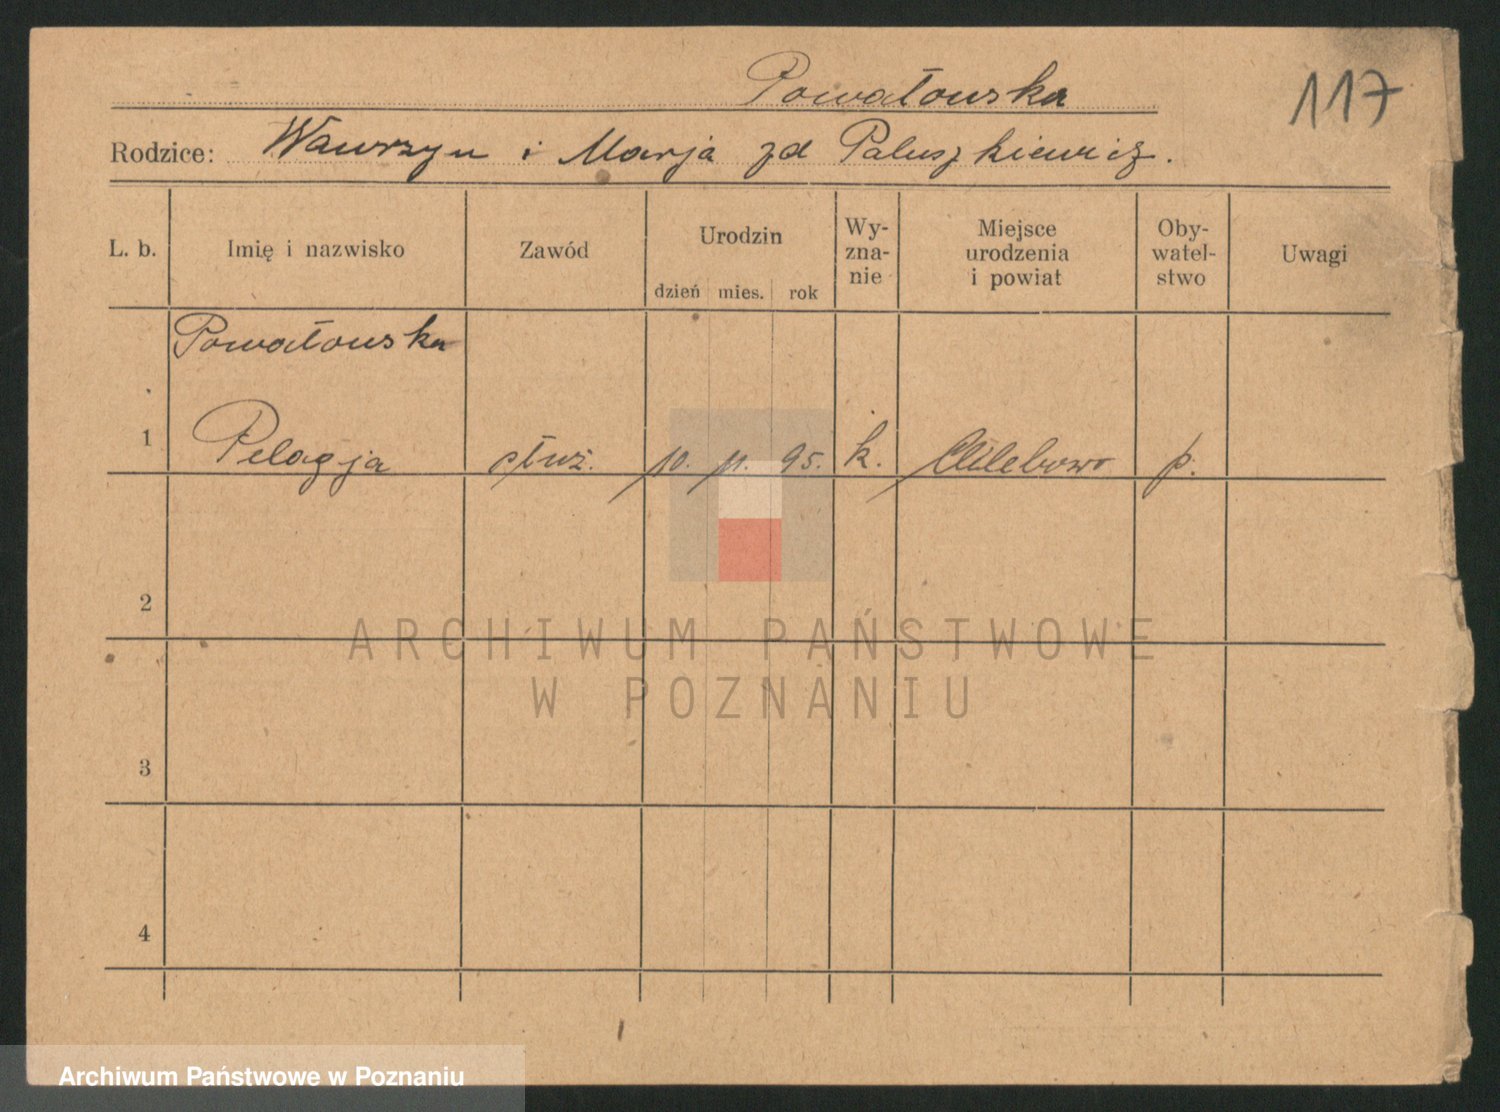 Powałowska
117
Rodzice: Wawrzyn i Marja zd Paluszkiewicz.
L. b.
Imię i nazwisko
Zawód
Urodzin
dzień mies. rok
Wy-
zna-
nie
Miejsce
urodzenia
i powiat
Oby-
watel-
stwo
Uwagi
Powałowska
1 Pelagja służ. 10. 11. 95. k. p.
2
3
4
ARCHIWUM PAŃSTWOWE
W POZNANIU
Archiwum Państwowe w Poznaniu